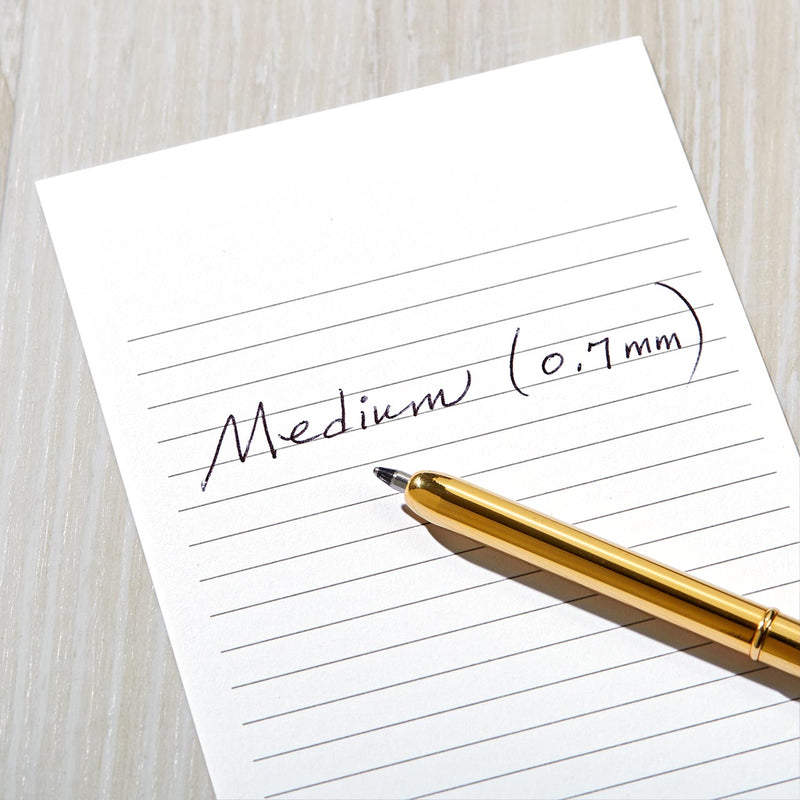 Medium (0.7mm)